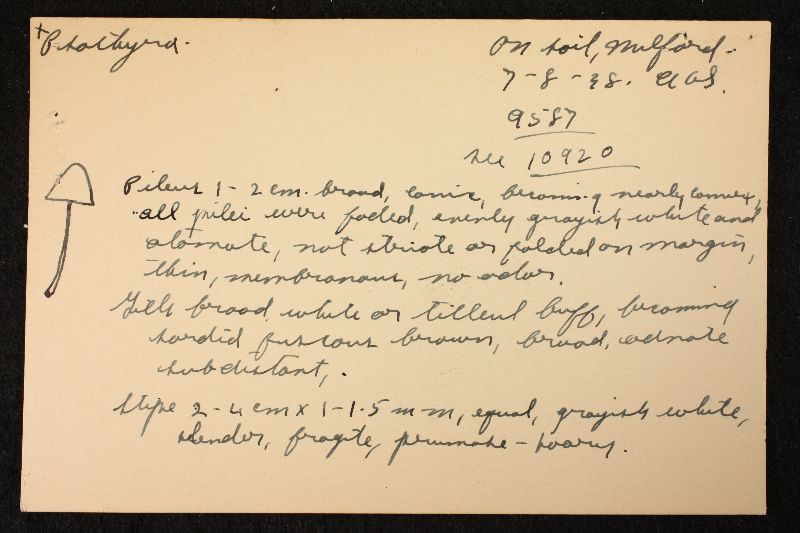 Psathyra.
on soil, Milford.
7-8-38. AHS.
9587
see 10920
Pileus 1-2 cm. broad, conic, becoming nearly convex,
all pilei were faded, evenly grayish white and
atomate, not striate or folded on margin,
thin, membranous, no odor.
Gills broad white or tilleul buff, becoming
sordid fuscous brown, broad, adnate
subdistant,.
Stipe 2-4 cm x 1-1.5 mm, equal, grayish white,
slender, fragile, pruinose-hoary.